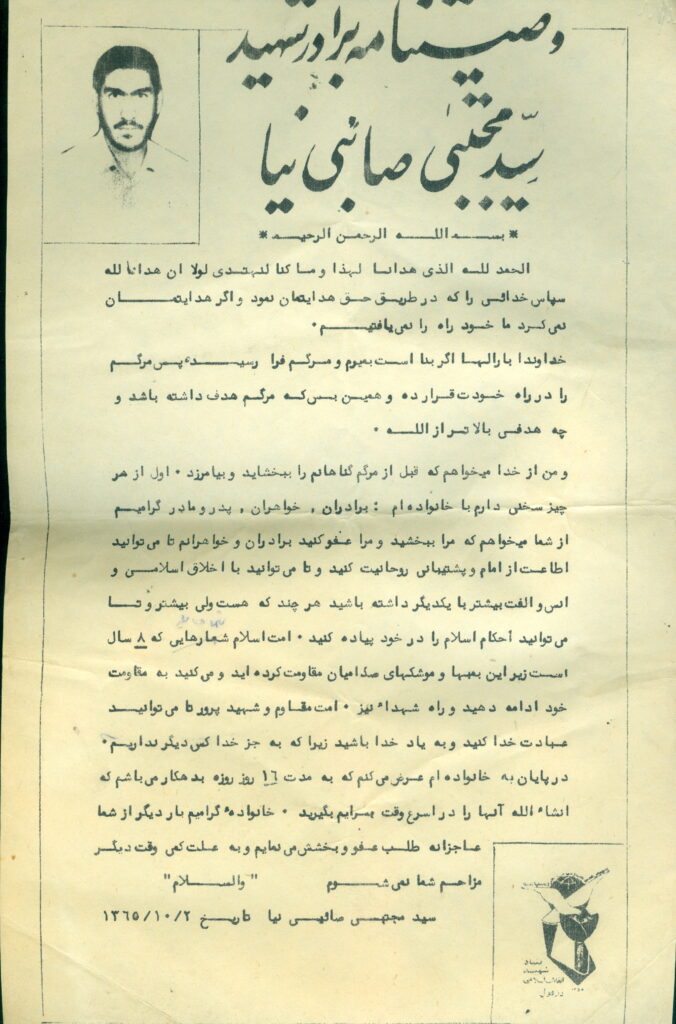 وصیتنامه برادر شهید
سیّد مجتبیٰ صائبی نیا
* بسم اللـــه الرحمن الرحیم *
الحمد للـه الذی هدانا لهذا و ما کنا لنهتدی لولا ان هدانا لله
سپاس خدائی را که در طریق حق هدایتمان نمود و اگر هدایتمـــان
نمی‌کرد ما خود راه را نمی‌یافتیـــم .
خداوندا بارالها اگر بنا است بمیرم و مــرگم فرا رسیـــده پس مرگـم
را در راه خــودت قرار ده و همین بس که مرگـم هدف داشته باشد و
چه هدفـی بالا تـر از اللــه .
و من از خدا میخواهم که قبل از مرگم گناهانم را ببخشاید و بیامرزد . اول از هر
چیز سخنی دارم با خانواده ام : برادران , خواهران , پدر و مادر گرامیـم
از شما میخواهم که مرا ببخشید و مرا عفو کنید برادران و خواهرانم تا می‌توانید
اطاعت از امام و پشتیبانی روحانیت کنید و تا می‌توانید با اخلاق اسلامـی و
انس و الفت بیشتر با یکدیگر داشته باشید هر چند که هست ولی بیشتر و تــا
می‌توانید احکام اسلام را در خود پیاده کنید . امت اسلام شعارهایی که ۸ سال
اسـت زیر این بمبها و موشکهای صدامیان مقاومت کرده اید و می‌کنید به مقاومت
خود ادامه دهید و راه شهداء نیز . امت مقاوم و شهید پرور تا می‌توانیـــد
عبـادت خدا کنید و به یاد خدا باشید زیرا که به جز خدا کس دیگر نداریـم .
در پایان به خانواده ام عـرض می‌کنم که به مدت ۱٦ روز روزه بدهکار می‌باشم که
انشاء الله آنها را در اسرع وقت برایم بگیرید . خانوادهٔ گرامیم بار دیگر از شما
عـاجزانه طلب عفو و بخشش می‌نمایم و به عـلت کمی وقت دیگـر
مزاحـم شما نمی شـــوم " والســـلام "
سید مجتبـی صائبـی نیا تاریــخ ۱۳٦۵/۱۰/۲
بنیاد
شهیـد
انقلاب اسلامی
دزفول